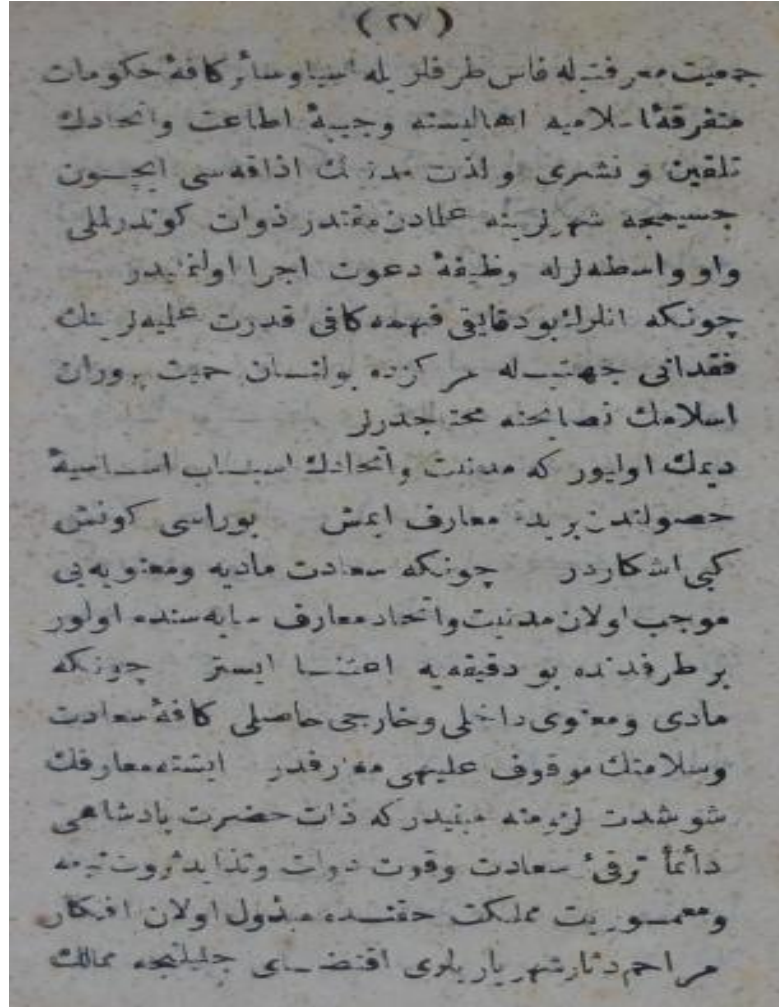 ( ٢٧ )
جمعیت معرفتیله فاس طرفلریله آسیا وسائر کافهٔ حکومات
متفرقهٔ اسلامیه اهالیسنه وجیبهٔ اطاعت واتحادك
تلقین و نشری و لذت مدنیتك اذاقه‌سی ایچـــون
جسیمجه شهرلرینه علمادن مقتدر ذوات کوندرلملی
واو واسطه‌لرله وظیفهٔ دعوت اجرا اولنملیدر
چونکه انلرك بو دقایقی فهمه کافی قدرت علمیه‌لرینك
فقدانی جهتیـله مرکزده بولنـان حمیت پروران
اسلامك نصایحنه محتاجدرلر
دیمك اولیور که مدنیت واتحادك اسبـاب اسـاسیهٔ
حصولندن بریده معارف ایمش بوراسی کونش
کبی اشکاردر چونکه سعادت مادیه ومعنویه‌یی
موجب اولان مدنیت واتحاد معارف سایه‌سنده اولور
بر طرفدنده بو دقیقه‌یه اعتنـا ایستر چونکه
مادی ومعنوی داخلی وخارجی حاصلی کافهٔ سعادت
وسلامتك موقوف علیهی معارفدر ایشته معارفك
شو شدت لزومنه مبنیدر که ذات حضرت پادشاهی
دائماً ترقیٔ سعادت وقوت دولت وتزاید ثروت تبعه
ومعمـوریت مملکت حقنـده مبذول اولان افکار
مراحم دثار شهریاریلری اقتضـای جلیلنجه ممالك